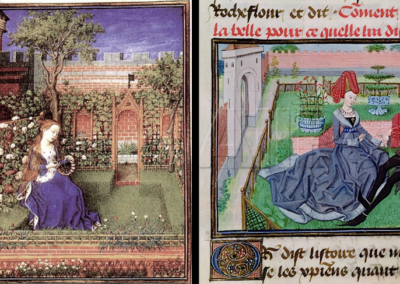 Rochefflour et dit Cõment
la belle pour ce quelle lui di
On dist listoire que m
se les vpiens quant